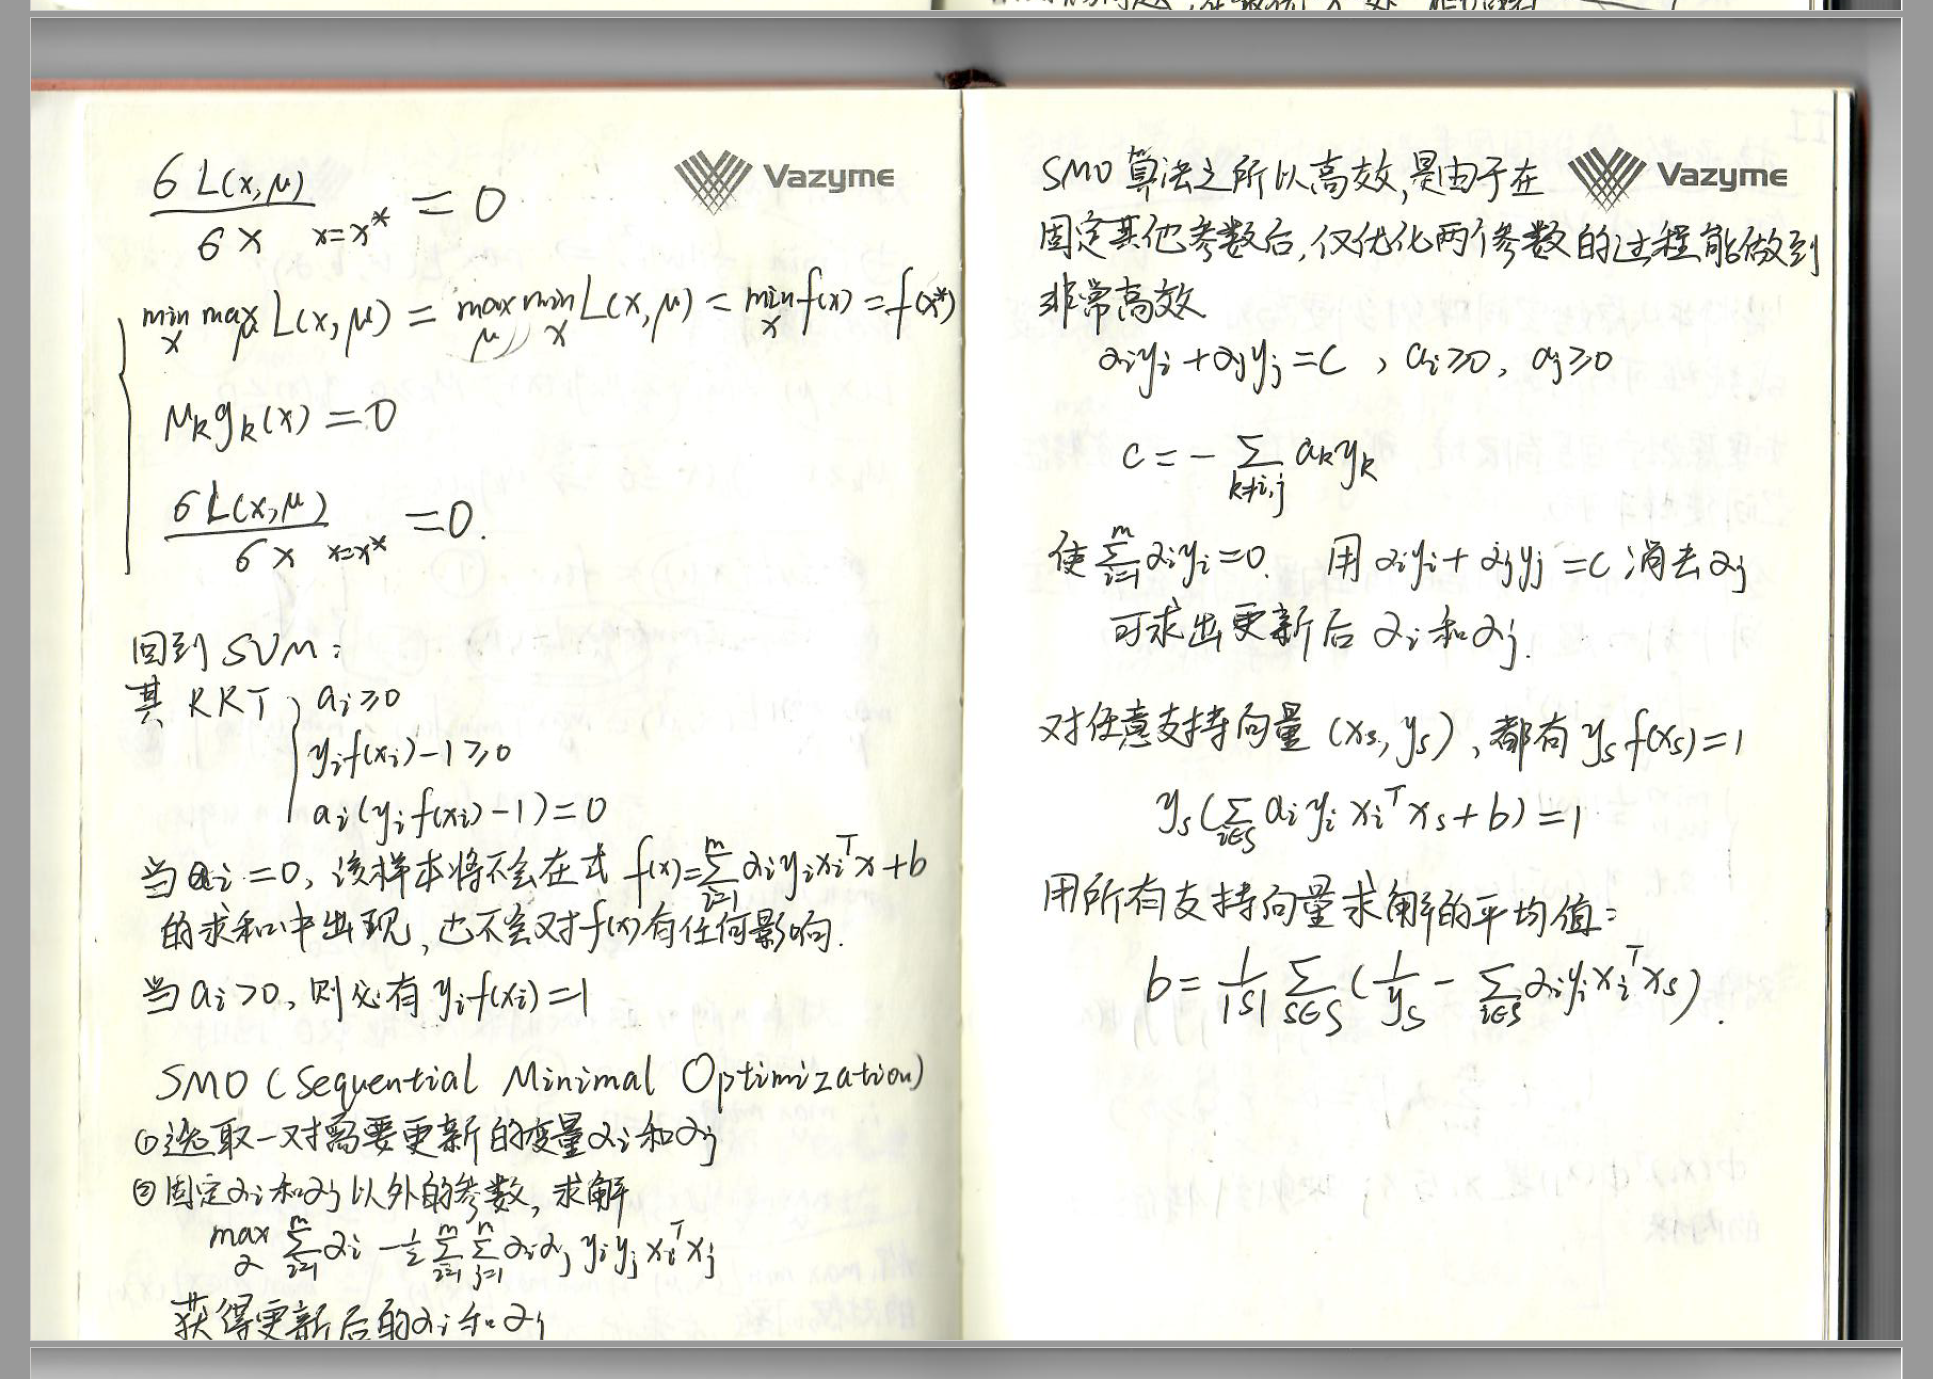 Vazyme
6 L(x,μ) / 6x x=x* = 0
min x max μ L(x,μ) = max μ min x L(x,μ) = min x f(x) = f(x*)
μk gk(x) = 0
6 L(x,μ) / 6x x=x* = 0.
回到 SVM:
其 KKT { ai ≥ 0
yi f(xi) - 1 ≥ 0
ai (yi f(xi) - 1) = 0
当 ai = 0, 该样本将不会在式 f(x) = Σ_{i=1}^{m} αi yi xi^T x + b
的求和中出现, 也不会对 f(x) 有任何影响.
当 ai > 0, 则必有 yi f(xi) = 1
SMO (Sequential Minimal Optimization)
① 选取一对需要更新的变量 αi 和 αj
② 固定 αi 和 αj 以外的参数, 求解
max α Σ_{i=1}^{m} αi - 1/2 Σ_{i=1}^{m} Σ_{j=1}^{n} αi αj yi yj xi^T xj
获得更新后的 αi 和 αj
Vazyme
SMO 算法之所以高效, 是由于在
固定其他参数后, 仅优化两个参数的过程能做到
非常高效
αi yi + αj yj = C , ai ≥ 0, aj ≥ 0
c = - Σ_{k≠i,j} ak yk
使 Σ_{i=1}^{m} αi yi = 0. 用 αi yi + αj yj = c 消去 αj
可求出更新后 αi 和 αj.
对任意支持向量 (xs, ys), 都有 ys f(xs) = 1
ys (Σ_{i∈S} ai yi xi^T xs + b) = 1
用所有支持向量求解的平均值:
b = 1/|S| Σ_{s∈S} (1/ys - Σ_{i∈S} αi yi xi^T xs) .